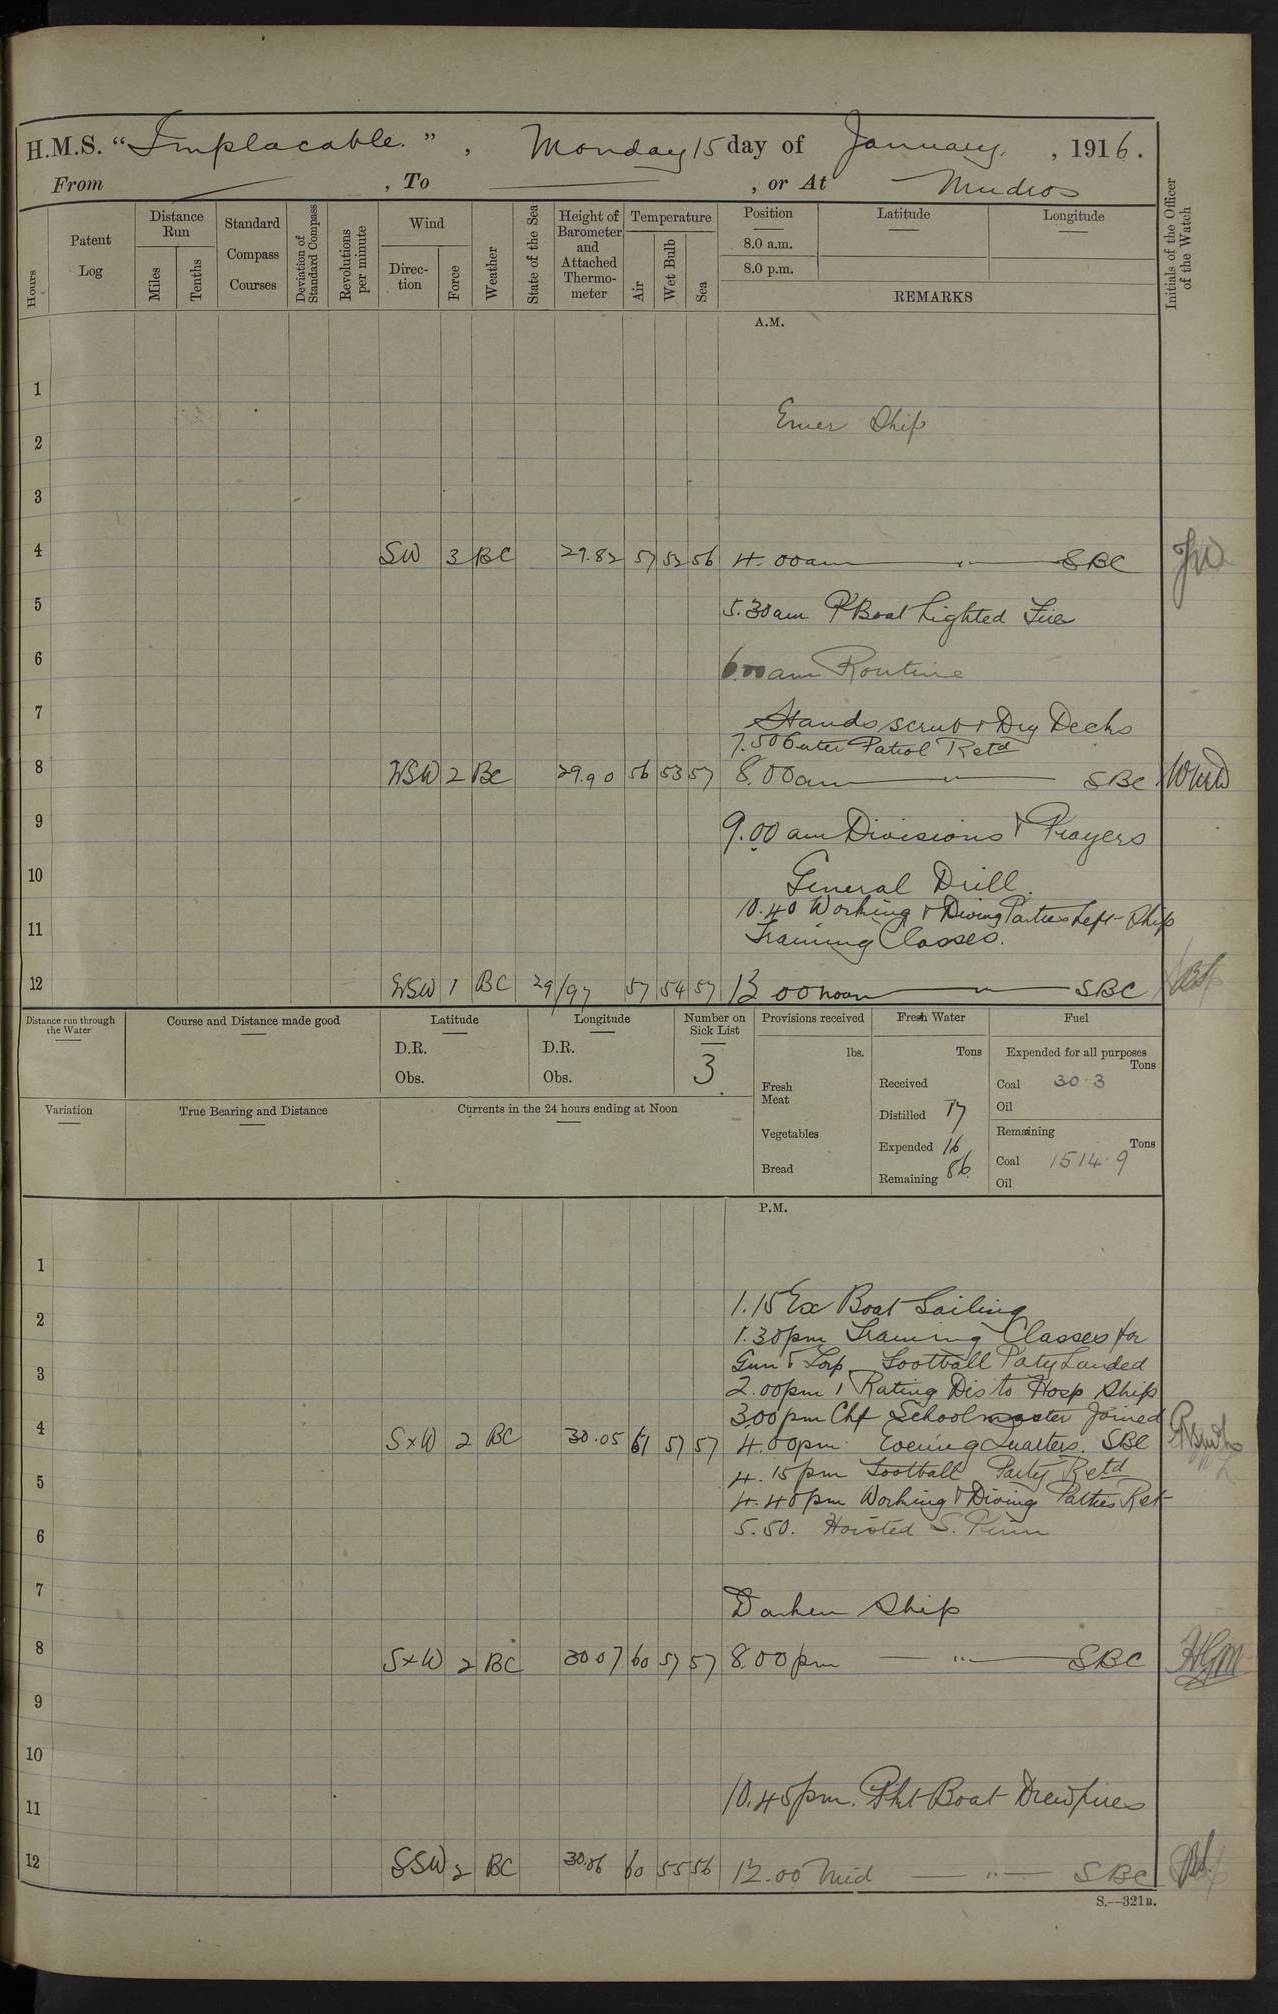 H.M.S. "Implacable." , Monday 15 day of January, , 1916.
From — , To — , or At Mudros
Hours
Patent Log
Distance Run
Miles
Tenths
Standard Compass Courses
Deviation of Standard Compass
Revolutions per minute
Wind
Direc-tion
Force
Weather
State of the Sea
Height of Barometer and Attached Thermo-meter
Temperature
Air
Wet Bulb
Sea
Position
8.0 a.m.
8.0 p.m.
Latitude
Longitude
REMARKS
Initials of the Officer of the Watch
A.M.
1
2 Ship
3
4 SW 3 BC 29.82 57 53 56 4.00am — " — SBC
5 5.30am P'Boat Lighted Fire
6 6.00am Routine
7 Hands scrub & Dry Decks
7.50 Outer Patrol Retd
8 WSW 2 BC 29.90 56 53 57 8.00am — " — SBC
9 9.00 am Divisions & Prayers
10 General Drill.
10.40 Working & Diving Parties Left Ship
11 Training Classes.
12 WSW 1 BC 29/97 57 54 57 12 00 noon — " — SBC
Distance run through the Water
Course and Distance made good
Latitude
D.R.
Obs.
Longitude
D.R.
Obs.
Number on Sick List
3
Provisions received
lbs.
Fresh Meat
Vegetables
Bread
Fresh Water
Tons
Received
Distilled 17
Expended 16
Remaining 86.
Fuel
Expended for all purposes
Tons
Coal 30.3
Oil
Remaining
Tons
Coal 1514.9
Oil
Variation
True Bearing and Distance
Currents in the 24 hours ending at Noon
P.M.
1
1.15 Ex Boat Sailing
2
1.30pm Training Classes for
Gun & Torp Football Party Landed
3
2.00pm 1 Rating Dis to Hosp Ship
3 00pm Chf Schoolmaster Joined
4 SxW 2 BC 30.05 61 57 57 4.00pm Evening Quarters. SBC
4.15pm Football Party Retd
5
4.40pm Working & Diving Parties Ret
5.50. Hoisted S. Pinn
6
7 Darken Ship
8 SxW 2 BC 30 07 60 57 57 8.00pm — " — SBC
HGM
9
10
10.45pm. Pkt Boat Drew fires
11
12 SSW 2 BC 30.06 60 55 56 12.00 Mid — " — SBC
S.—321B.